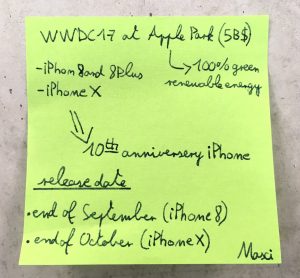 WWDC17 at Apple Park (5B$)
↳ 100% green
renewable energy
- iPhon 8 and 8 Plus
- iPhone X
10th anniversery iPhone
release date
• end of September (iPhone 8)
• end of October (iPhone X)
Masci